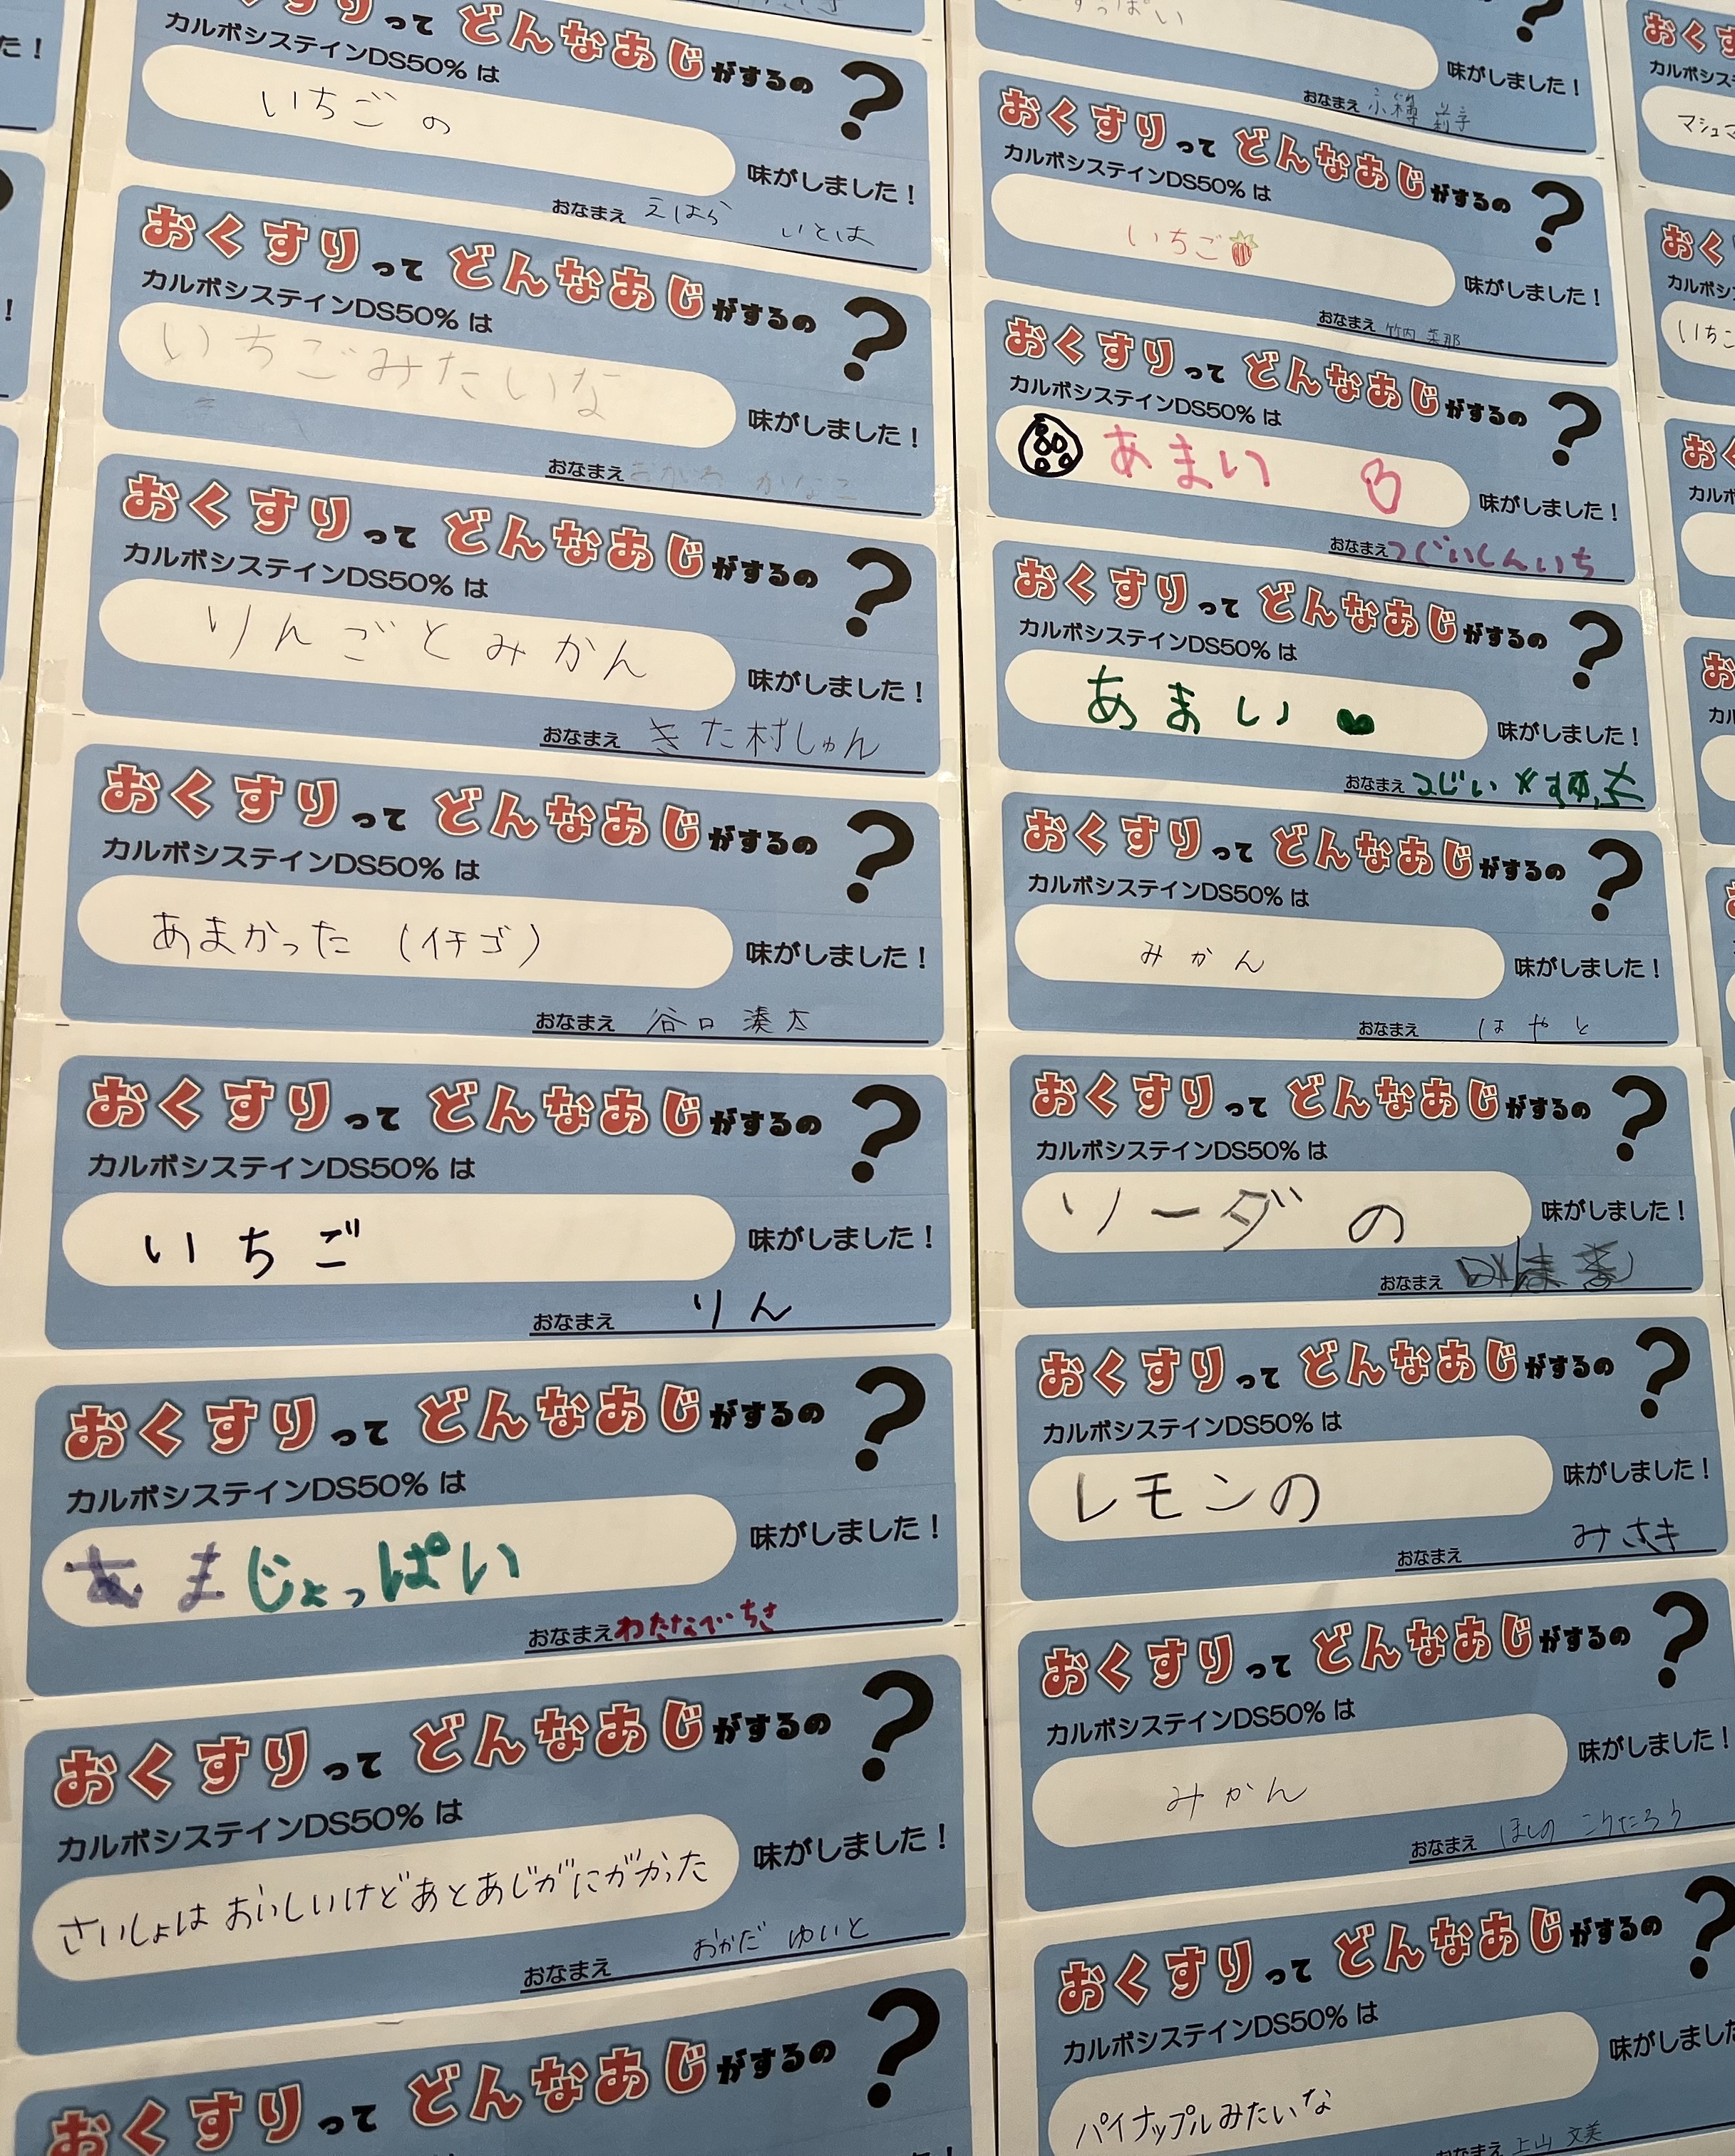 た！
！
カルボシステインDS50% は
いちごの
味がしました！
おなまえ えはら いとは
おくすりって どんなあじがするの？
カルボシステインDS50% は
いちごみたいな
味がしました！
おなまえ おがわ かなこ
おくすりって どんなあじがするの？
カルボシステインDS50% は
りんごとみかん
味がしました！
おなまえ きた村しゅん
おくすりって どんなあじがするの？
カルボシステインDS50% は
あまかった（イチゴ）
味がしました！
おなまえ 谷口 湊太
おくすりって どんなあじがするの？
カルボシステインDS50% は
いちご
味がしました！
おなまえ りん
おくすりって どんなあじがするの？
カルボシステインDS50% は
あまじょっぱい
味がしました！
おなまえ わたなべ ちさ
おくすりって どんなあじがするの？
カルボシステインDS50% は
さいしょは おいしいけどあとあじがにがかった
味がしました！
おなまえ おかだ ゆいと
おくすりって どんなあじがするの？
すっぱい
味がしました！
おなまえ
おくすりって どんなあじがするの？
カルボシステインDS50% は
いちご
味がしました！
おなまえ 竹内
おくすりって どんなあじがするの？
カルボシステインDS50% は
あまい
味がしました！
おなまえ つじいしんいち
おくすりって どんなあじがするの？
カルボシステインDS50% は
あまい
味がしました！
おなまえ つじい
おくすりって どんなあじがするの？
カルボシステインDS50% は
みかん
味がしました！
おなまえ はやと
おくすりって どんなあじがするの？
カルボシステインDS50% は
ソーダの
味がしました！
おなまえ
おくすりって どんなあじがするの？
カルボシステインDS50% は
レモンの
味がしました！
おなまえ みさき
おくすりって どんなあじがするの？
カルボシステインDS50% は
みかん
味がしました！
おなまえ ほしの こうたろう
おくすりって どんなあじがするの？
カルボシステインDS50% は
パイナップルみたいな
味がしました
おなまえ 上山 文美
おくす
カルボシス
マシュマ
おく
カルボシ
いちご